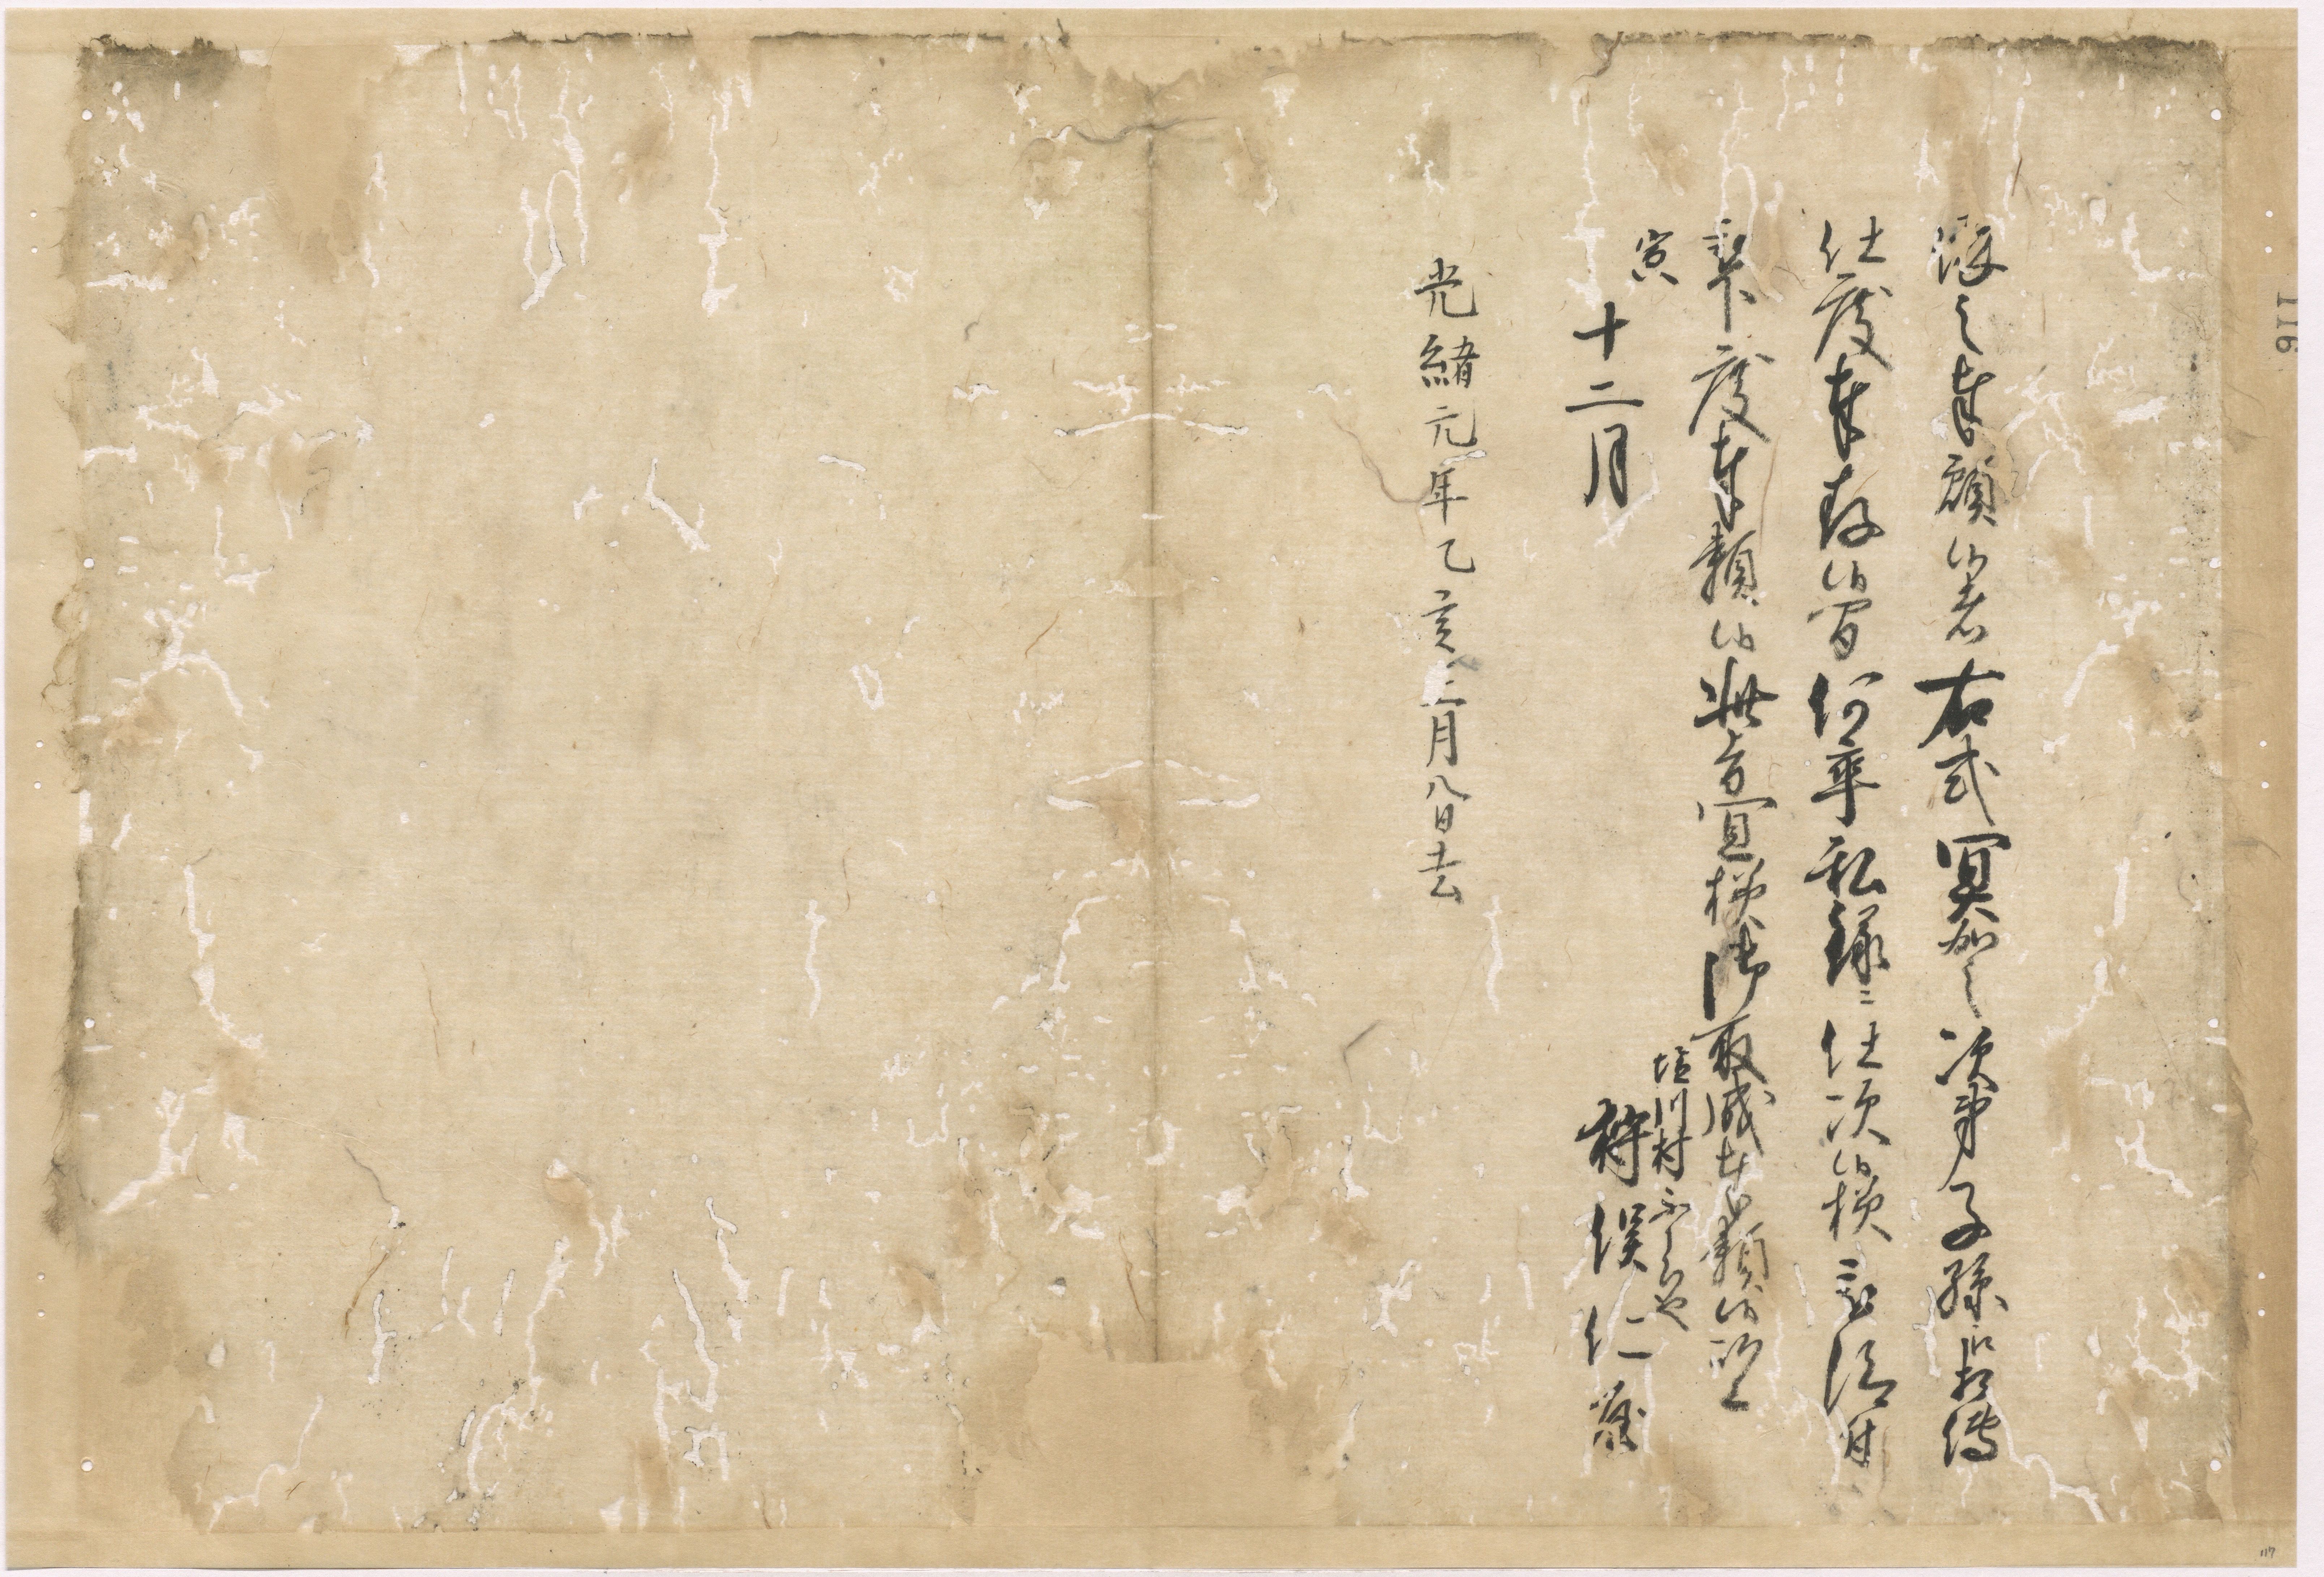 渡之奉願候者右式冥加之次第子孫江相伝
仕度奉存候間何卒私録ニ仕次候様被仰付
被下度奉願候此旨宜様御取成奉願候以上
寅
十二月
塩川村
狩俣仁屋
光緒元年乙亥二月八日去
116
117